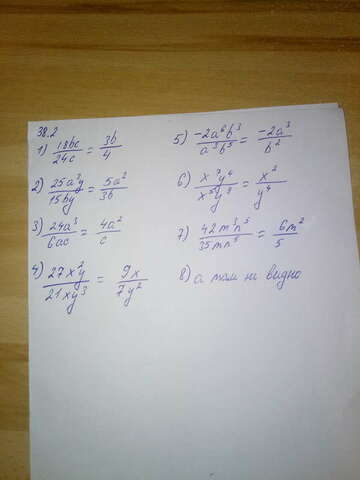 38.2
1) 18bc/24c = 3b/4
2) 25a²y/15by = 5a²/3b
3) 24a³/6ac = 4a²/c
4) 27x²y/21xy³ = 9x/7y²
5) -2a⁶b³/a³b⁵ = -2a³/b²
6) x⁷y⁴/x⁵y⁸ = x²/y⁴
7) 42m³n⁵/35mn⁵ = 6m²/5
8) а там не видно